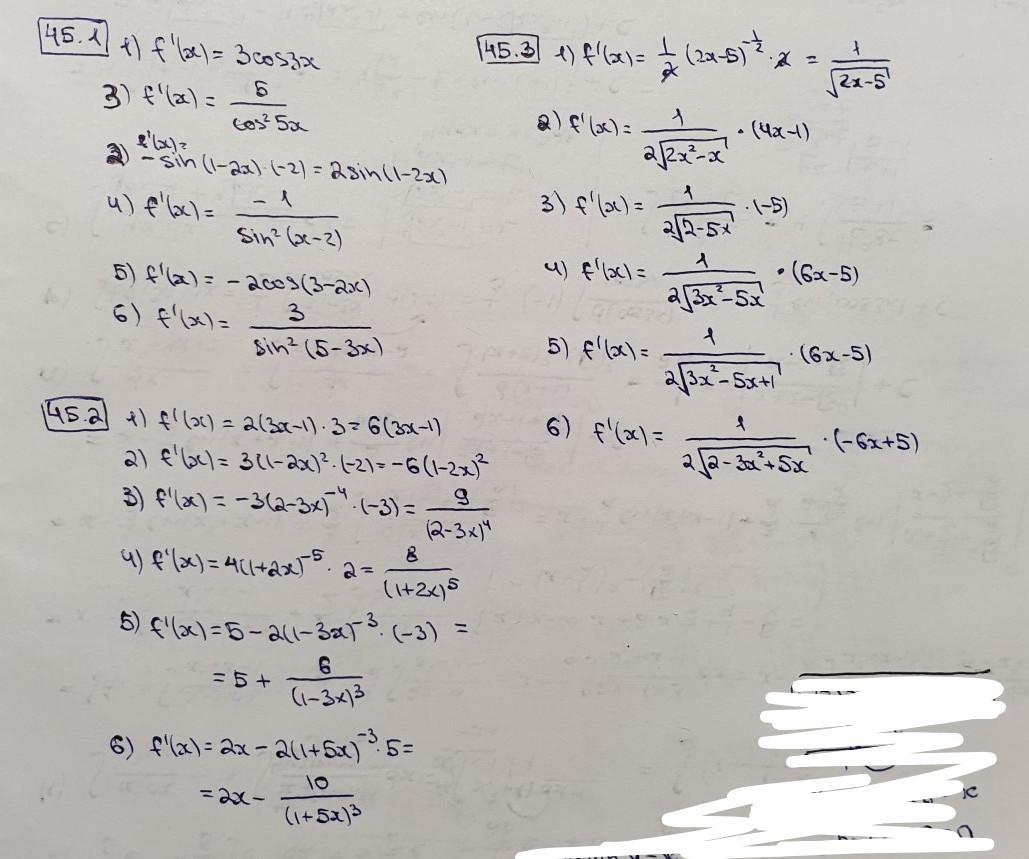 45.1 1) f'(x) = 3cos3x
3) f'(x) = 5/cos²5x
2) f'(x)= -sin(1-2x)·(-2) = 2sin(1-2x)
4) f'(x) = -1/sin²(x-2)
5) f'(x) = -2cos(3-2x)
6) f'(x) = 3/sin²(5-3x)
45.2 1) f'(x) = 2(3x-1)·3 = 6(3x-1)
2) f'(x) = 3(1-2x)²·(-2) = -6(1-2x)²
3) f'(x) = -3(2-3x)⁻⁴·(-3) = 9/(2-3x)⁴
4) f'(x) = 4(1+2x)⁻⁵·2 = 8/(1+2x)⁵
5) f'(x) = 5-2(1-3x)⁻³·(-3) =
= 5 + 6/(1-3x)³
6) f'(x) = 2x-2(1+5x)⁻³·5 =
= 2x - 10/(1+5x)³
45.3 1) f'(x) = 1/2 (2x-5)^(-1/2)·2 = 1/√(2x-5)
2) f'(x) = 1/(2√(2x²-x)) · (4x-1)
3) f'(x) = 1/(2√(2-5x)) · (-5)
4) f'(x) = 1/(2√(3x²-5x)) · (6x-5)
5) f'(x) = 1/(2√(3x²-5x+1)) · (6x-5)
6) f'(x) = 1/(2√(2-3x²+5x)) · (-6x+5)